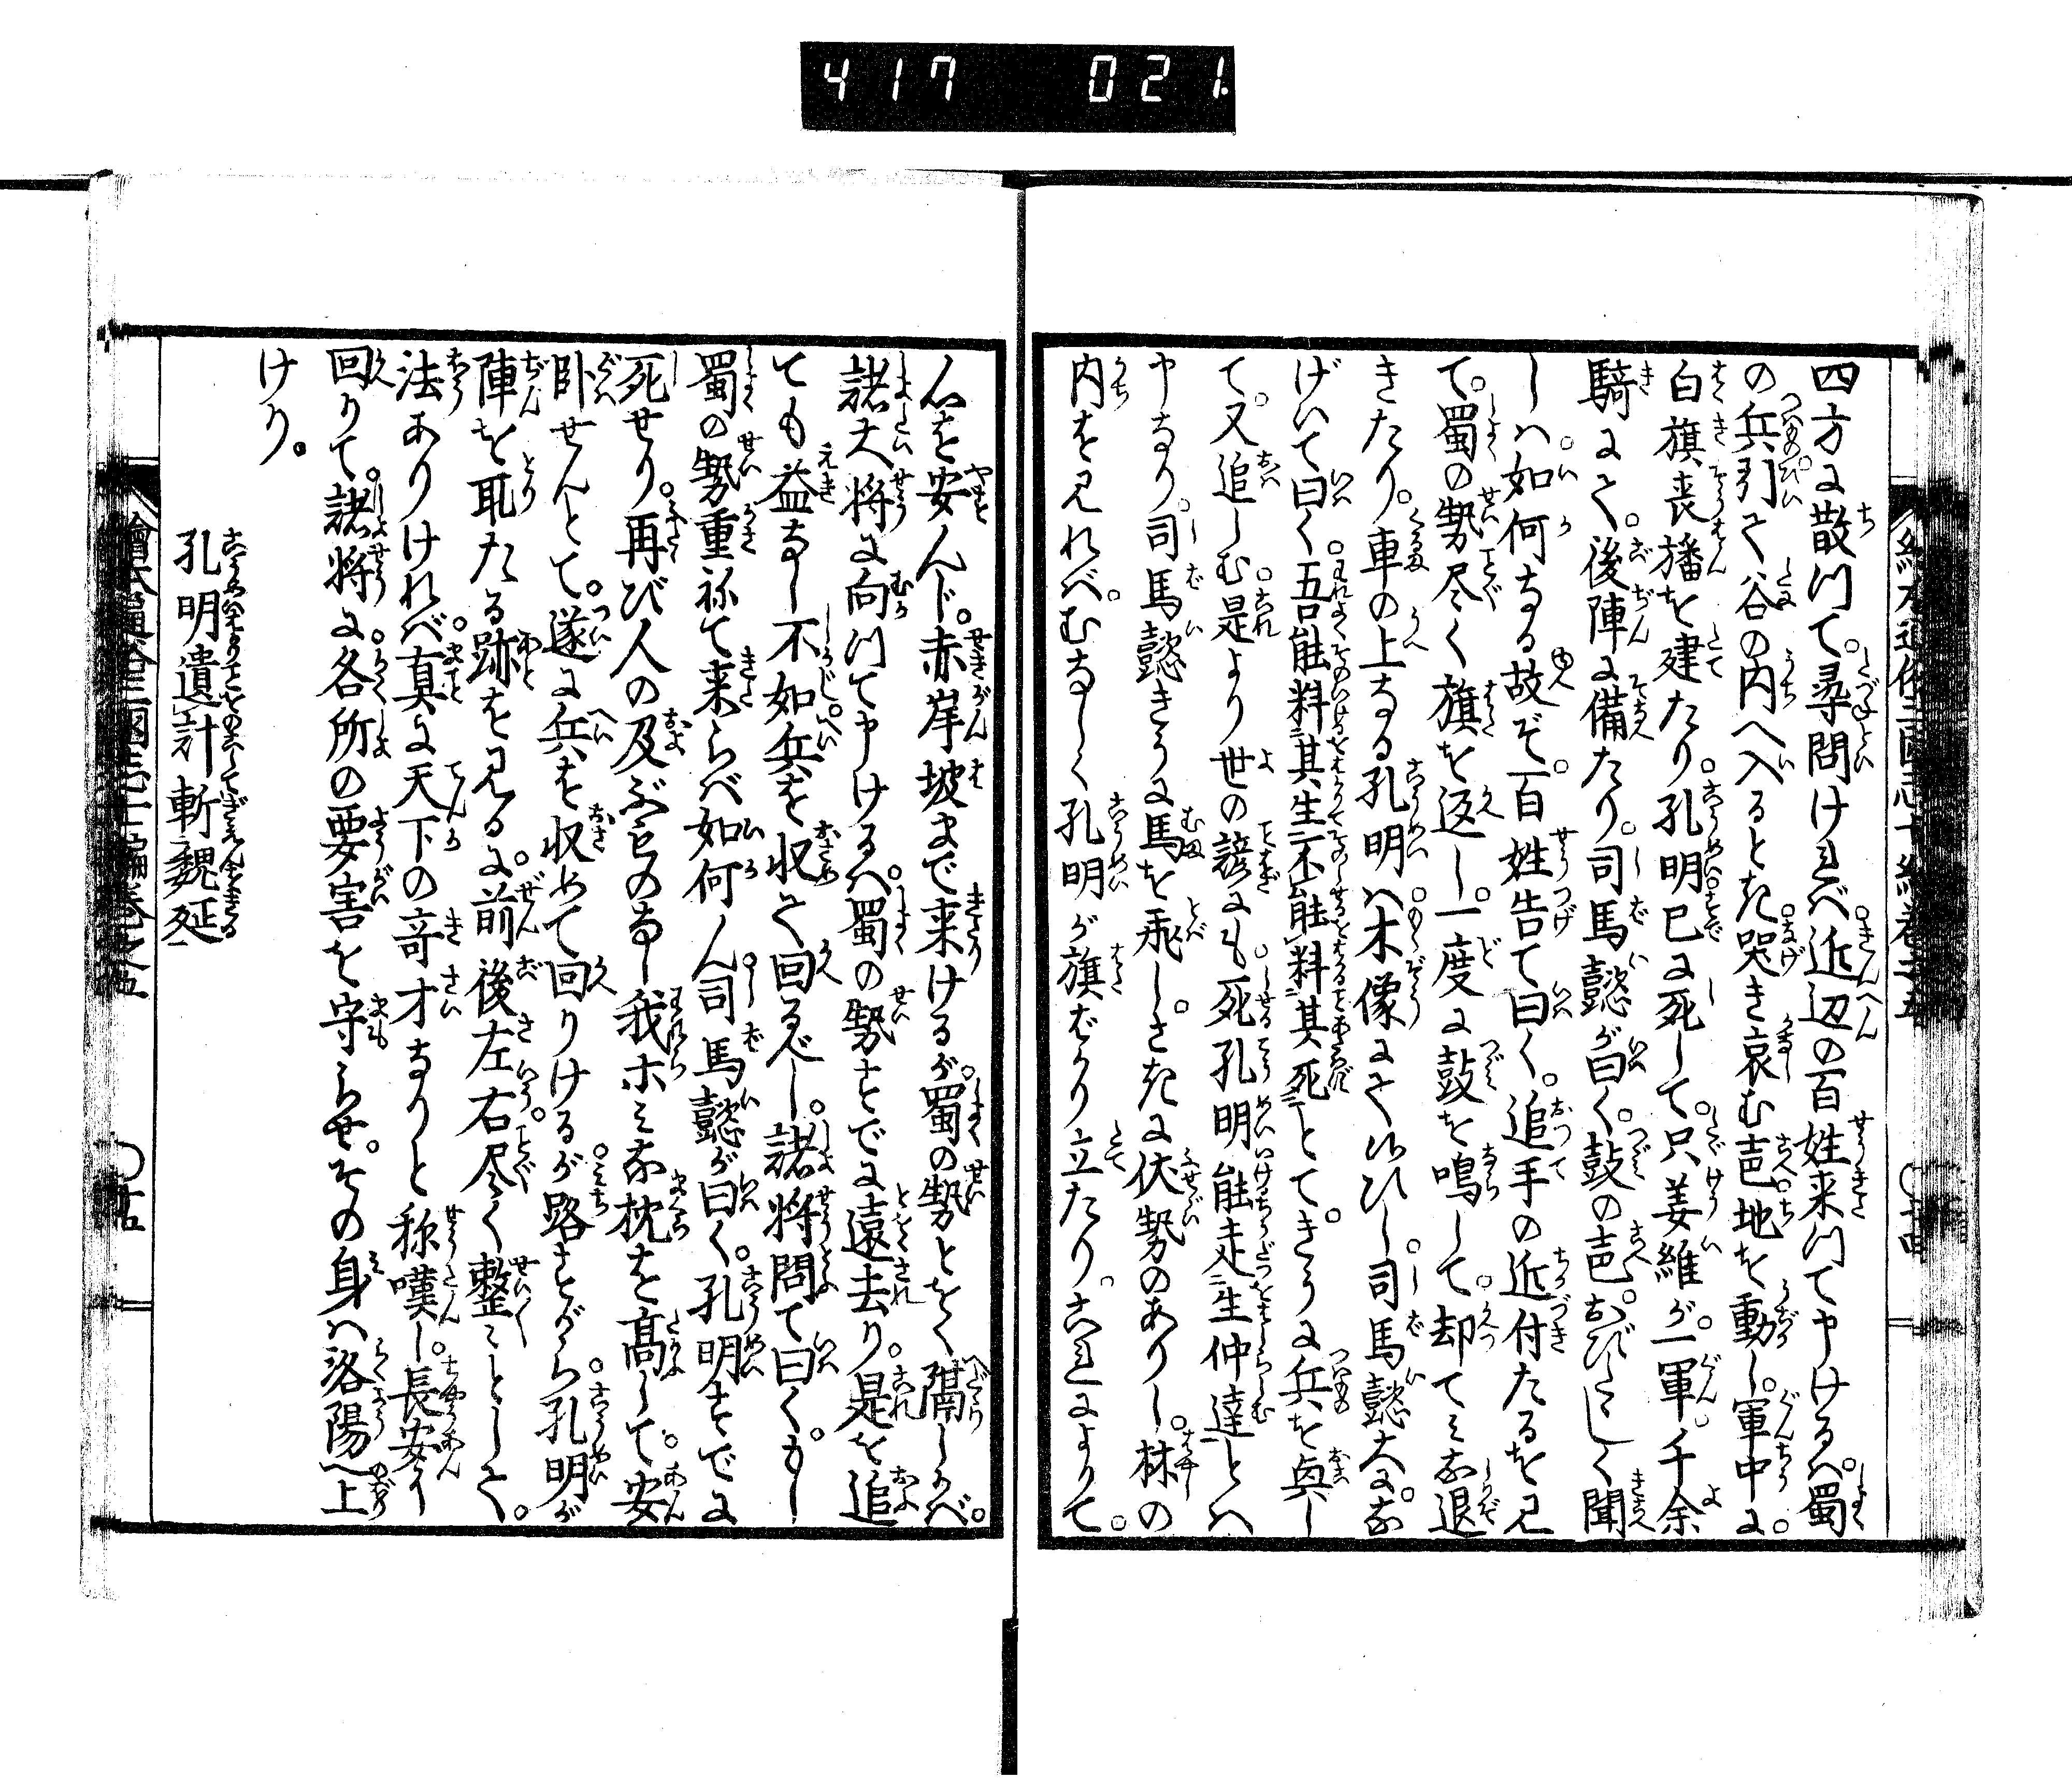 417 021
四方に散つて。尋問ければ。近辺の百姓来つて申けるは。蜀
の兵引て谷の内へ入るとき。哭き哀む声。地を動し。軍中に。
白旗喪旛を建たり。孔明已に死して。只姜維が。一軍。千余
騎にて。後陣に備たり。司馬懿が曰く。鼓の声。おびたゝしく聞
しは。如何なる故ぞ。百姓告て曰く。追手の近付たるを見
て。蜀の勢尽く旗を返し。一度に鼓を鳴して。却てみな退
きたり。車の上なる孔明は。木像にて候ひし。司馬懿大にな
げいて曰く。吾能料其生不能料其死とて。きうに兵を与し
て。又追しむ。是より世の諺にも。死孔明能走生仲達とは
申なり。司馬懿きうに馬を飛し。さきに伏勢のありし。林の
内を見れば。むなしく孔明が旗ばかり立たり。これによりて。
心を安んじ。赤岸坡まで来けるが。蜀の勢とをく隔しかば。
諸大将に向つて申けるは。蜀の勢すでに遠去り。是を追
ても益なし不如兵を収て回るべし。諸将問て曰く。もし
蜀の勢重ねて来らば如何ん司馬懿が曰く。孔明すでに
死せり。再び人の及ぶものなし我ホみな枕を高して。安
臥せんとて。遂に兵を収めて回りけるが。路すがら。孔明が
陣を取たる跡を見るに。前後左右。尽く整ゝとして。
法ありければ。真に天下の奇才なりと称嘆し。長安に
回りて。諸将に。各所の要害を守らせ。その身は洛陽へ上
けり。
孔明遺計斬魏延